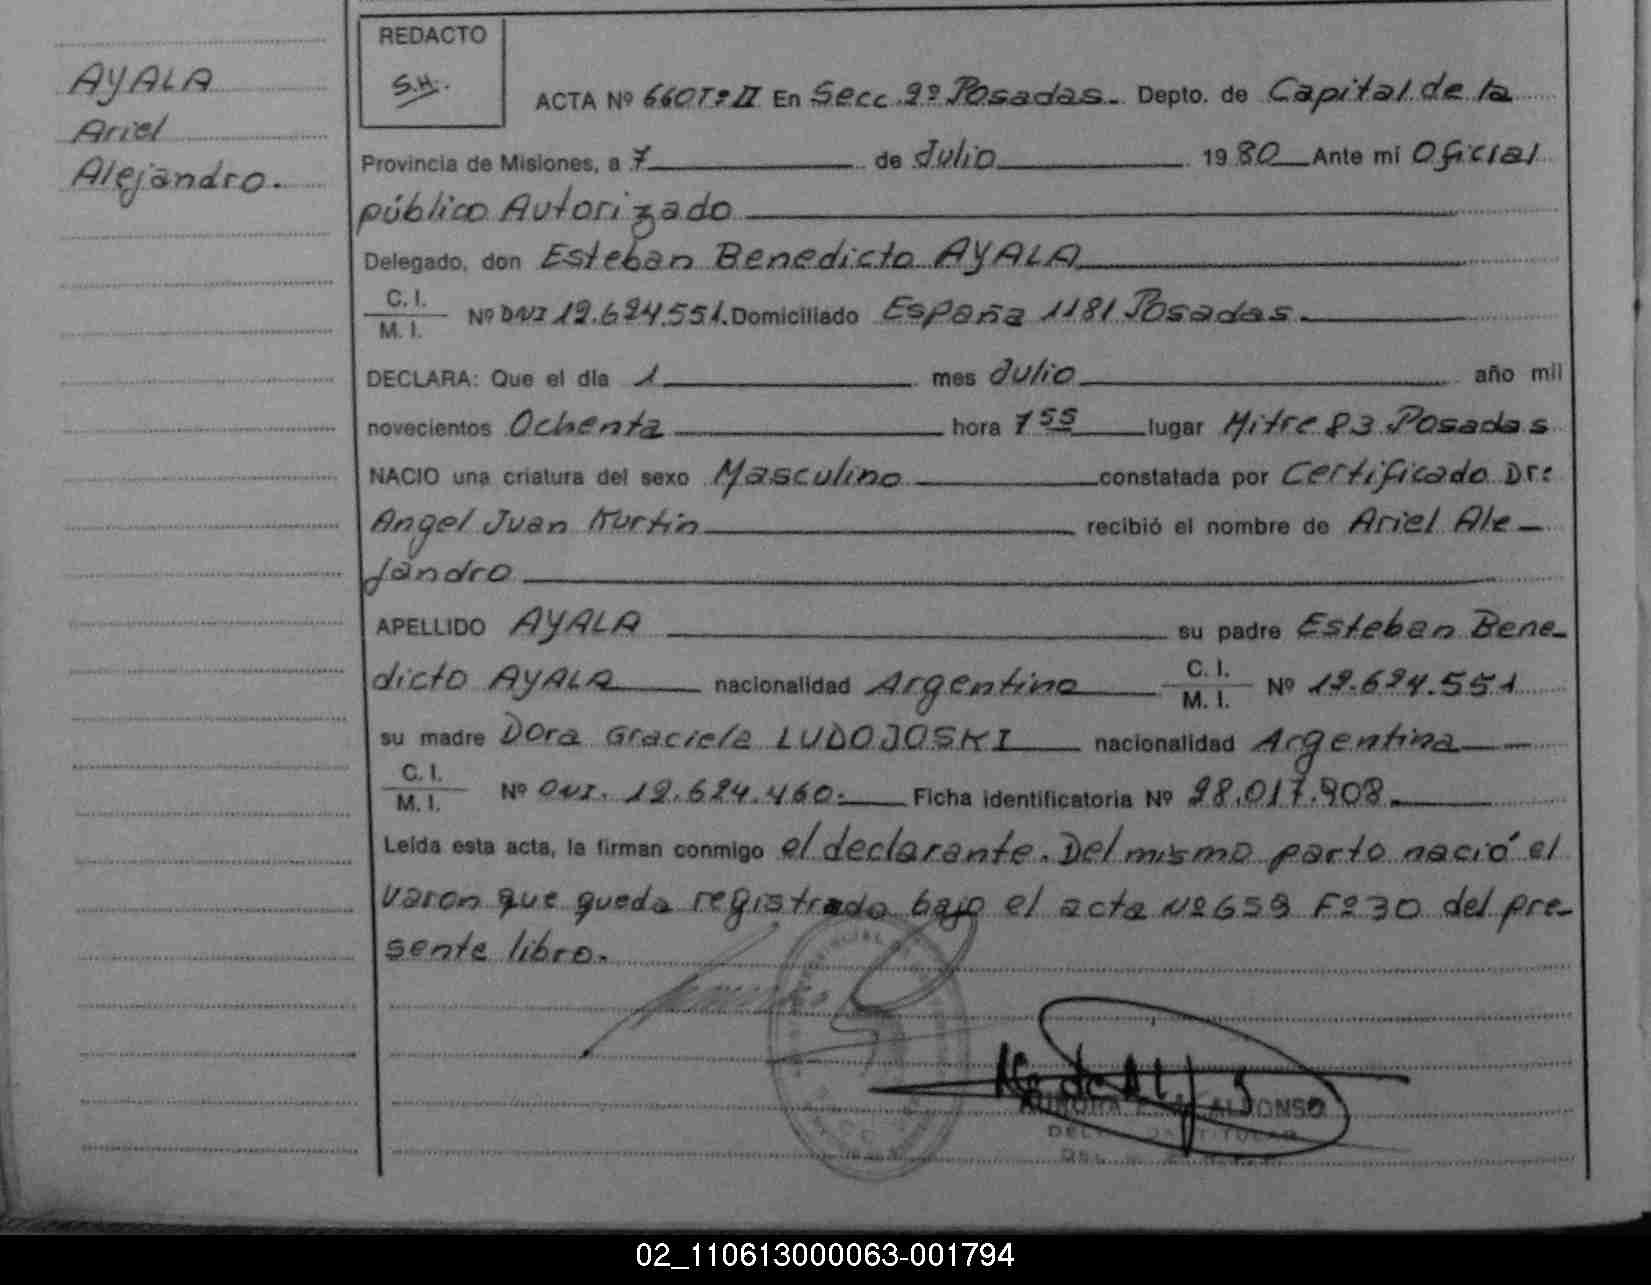 AYALA
Ariel
Alejandro.
REDACTO
S.H.
ACTA Nº 660 Tº II En Secc. 2º Posadas. Depto. de Capital de la
Provincia de Misiones, a 7 de Julio 1980 Ante mi Oficial
público Autorizado
Delegado, don Esteban Benedicto AYALA
C. I.
M. I.
Nº DNI 12.624.551. Domiciliado España 1181 Posadas.
DECLARA: Que el dia 1 mes Julio año mil
novecientos Ochenta hora 7 55 lugar Mitre 83 Posadas
NACIO una criatura del sexo Masculino constatada por Certificado Dr:
Angel Juan Kurtin recibió el nombre de Ariel Ale-
jandro
APELLIDO AYALA su padre Esteban Bene-
dicto AYALA nacionalidad Argentino C. I. M. I. Nº 12.624.551
su madre Dora Graciela LUDOJOSKI nacionalidad Argentina
C. I.
M. I.
Nº DNI. 12.624.460. Ficha identificatoria Nº 28.017.908.
Leída esta acta, la firman conmigo el declarante. Del mismo parto nació el
varon que queda registrado bajo el acta Nº 659 Fº 30 del pre-
sente libro.
02_110613000063-001794